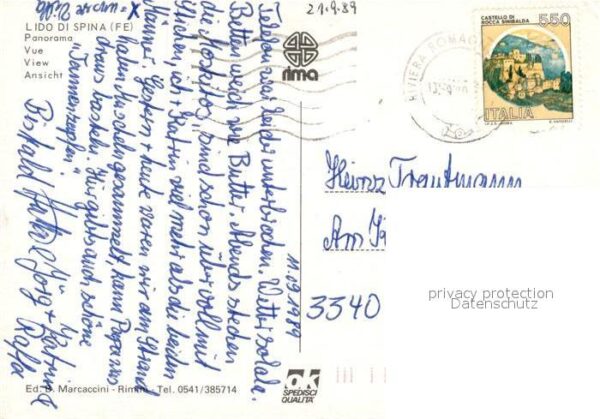 21.9.89
LIDO DI SPINA (FE)
Panorama
Vue
View
Ansicht
rima
RIVIERA ROMAG
CASTELLO DI
ROCCA SINIBALDA
550
ITALIA
11.09.1989
Telefon war leider unterbrochen. Wetter ist alles
Butter, auch wie Butter. Abends stechen
die Moskitos, sind schon übervoll mit
Stichen, ich + Katrin viel mehr als die beiden
Männer. Gestern + heute waren wir am Strand
haben Muscheln gesammelt, kann Papa was
draus basteln. Hier gibts auch schöne
"Tannenzapfen".
Bis bald
Jörg + Katrin &
Ralf
Heinz Trautmann
Am
3340
privacy protection
Datenschutz
ok
SPEDISCI
QUALITÀ
Ed. D. Marcaccini - Rimini - Tel. 0541/385714